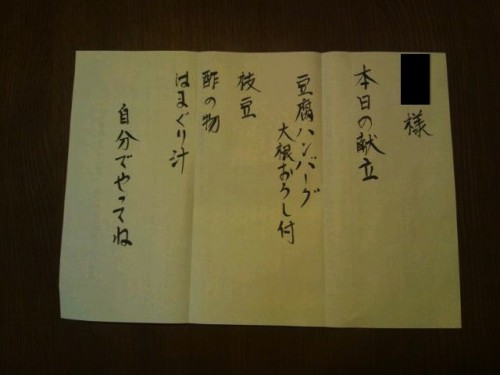 様
本日の献立
豆腐ハンバーグ
大根おろし付
枝豆
酢の物
はまぐり汁
自分でやってね